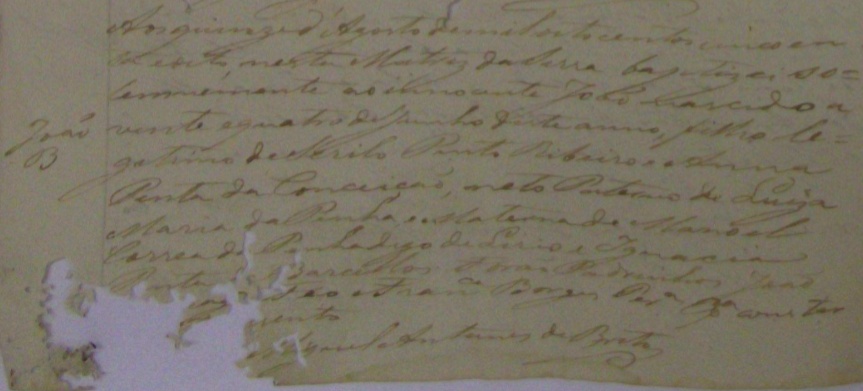 Aos quinze d'Agosto de mil oito centos cincoen
ta e oito, nesta Matriz da Serra baptizei so=
lemnemente ao innocente João nascido a
vinte e quatro de Junho deste anno, filho le=
João
B
gitimo de Pinto Ribeiro e Anna
Penta da Conceição, neto Paterno de Luiza
Maria da Penha, e Materno de Manoel
Correa de e Ignacia
Barcellos Padrinhos João
e Fran.ca Borges Para constar
mento
Antunes de Brito